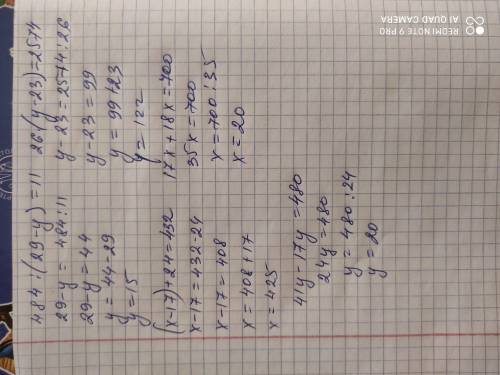 484:(29-y)=11
29-y = 484:11
29-y=44
y = 44-29
y=15
26·(y-23)=2574
y-23=2574:26
y-23=99
y = 99+23
y=122
(x-17)+24=432
x-17=432-24
x-17=408
x=408+17
x=425
17x+18x=700
35x=700
x=700:35
x=20
41y-17y=480
24y=480
y=480:24
y=20
REDMI NOTE 9 PRO
AI QUAD CAMERA